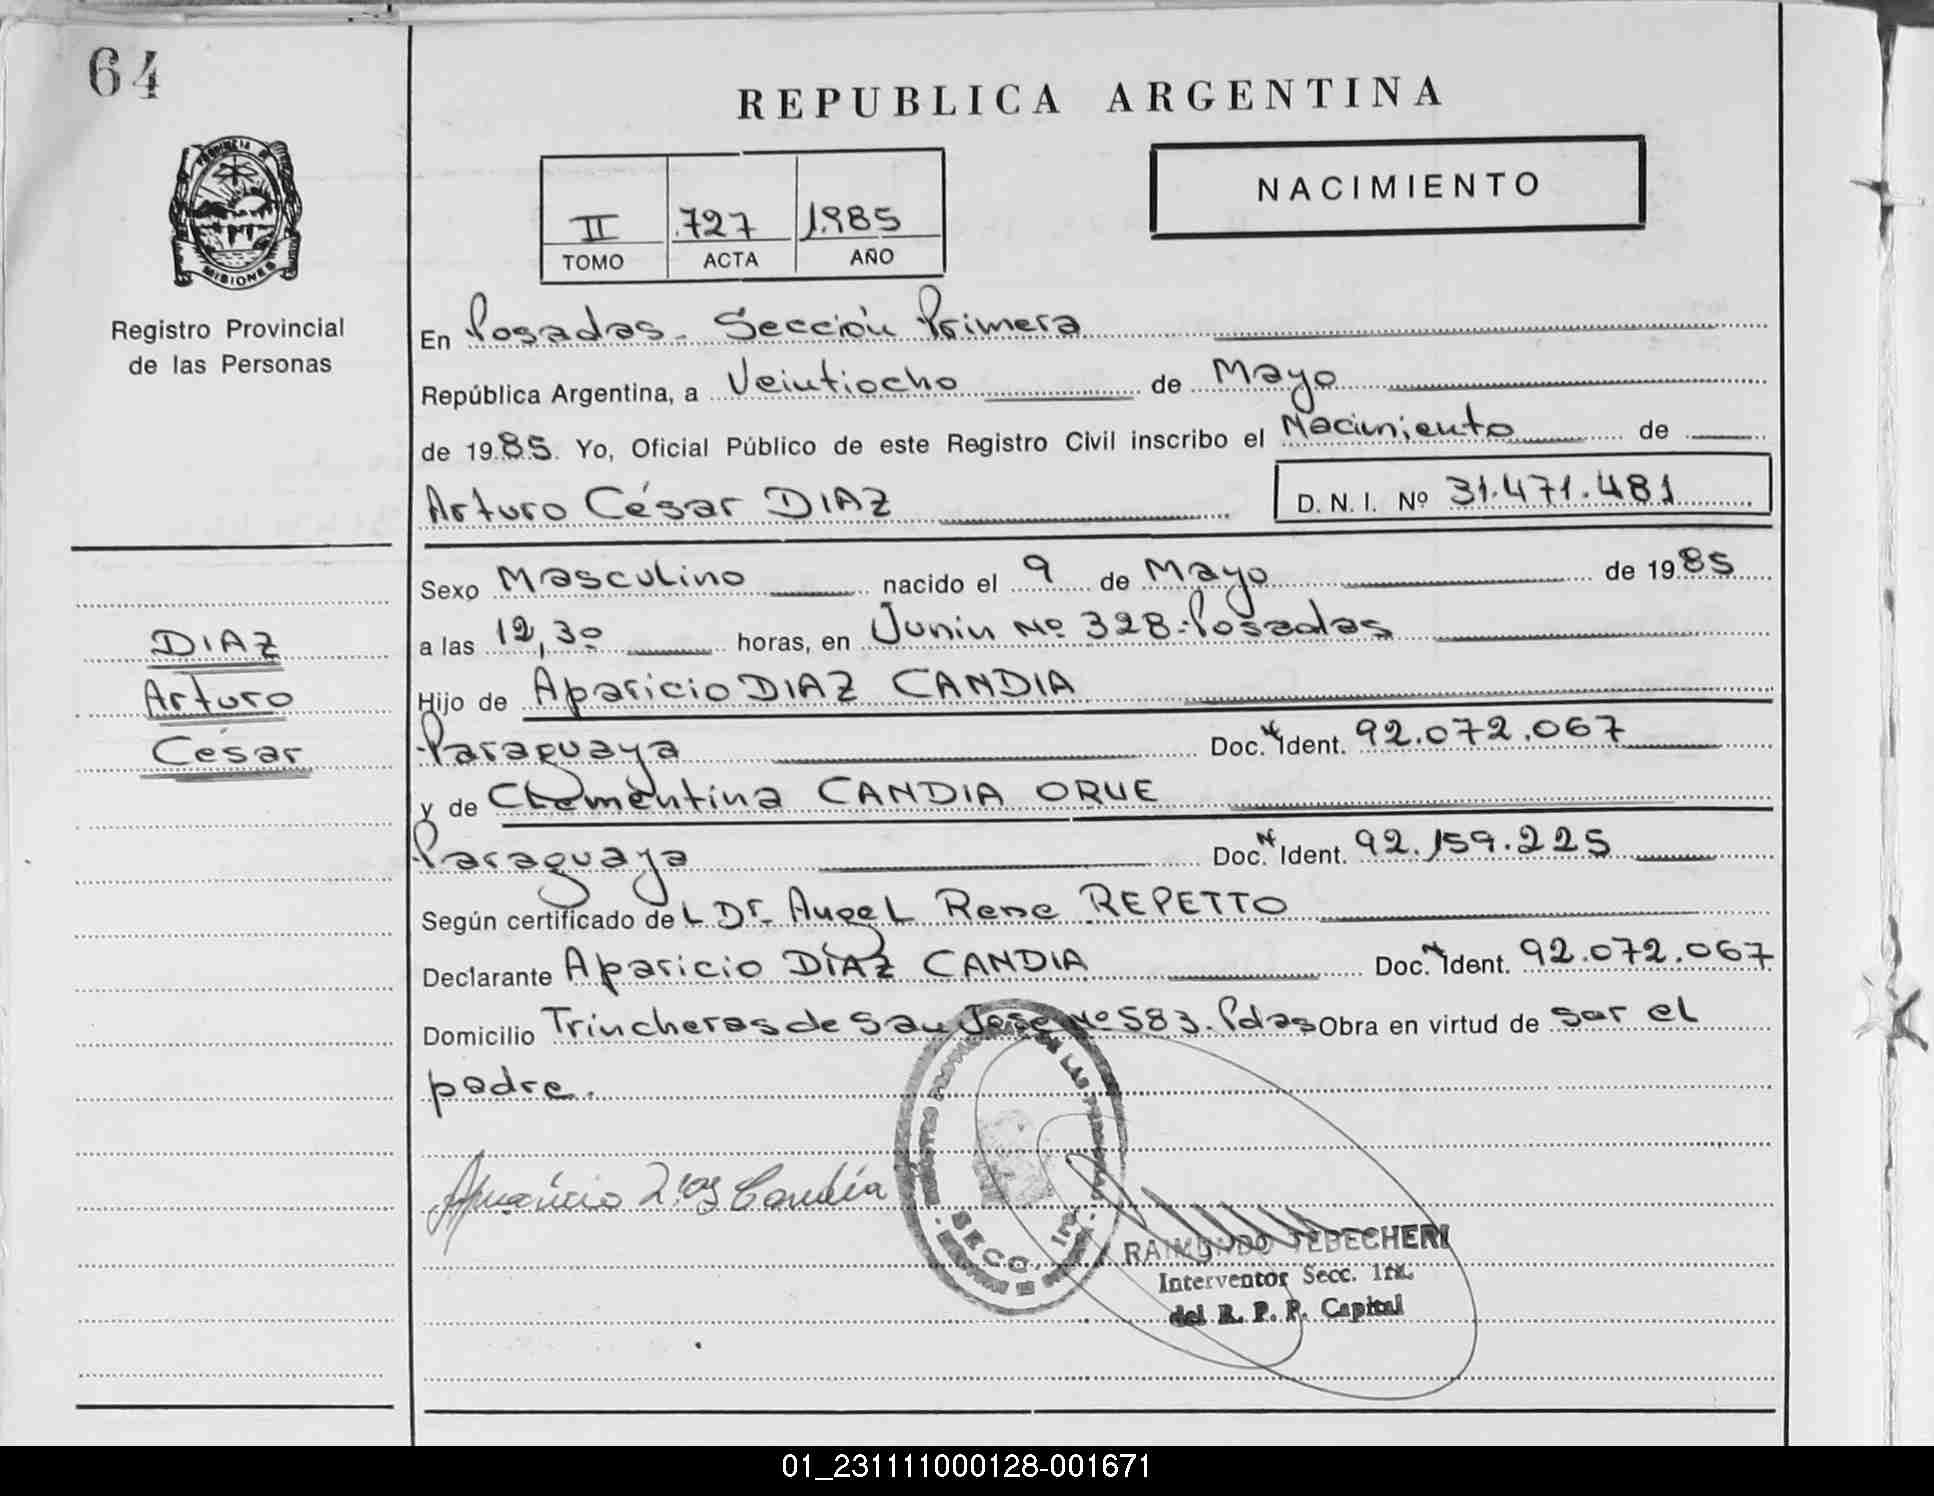 64
REPUBLICA ARGENTINA
PROVINCIA DE
MISIONES
Registro Provincial
de las Personas
II .727 1.985
TOMO ACTA AÑO
NACIMIENTO
En Posadas. Sección Primera
República Argentina, a Veintiocho de Mayo
de 1985. Yo, Oficial Público de este Registro Civil inscribo el Nacimiento de
Arturo César DIAZ
D. N. I. Nº 31.471.481
DIAZ
Arturo
César
Sexo Masculino nacido el 9 de Mayo de 1985
a las 12,30 horas, en Junin Nº 328-Posadas
Hijo de Aparicio DIAZ CANDIA
Paraguaya Doc. N Ident. 92.072.067
y de Clementina CANDIA ORUE
Paraguaya Doc. N Ident. 92.159.225
Según certificado del Dr. Angel Rene REPETTO
Declarante Aparicio DÍAZ CANDIA Doc. N Ident. 92.072.067
Domicilio Trincheras de San Jose Nº 583. Pdas Obra en virtud de ser el
padre.
Aparicio Diaz Candia
REGISTRO PROVINCIAL DE LAS PERSONAS
SECC. 1ra.
RAIMUNDO TEBECHERI
Interventor Secc. 1ra.
del R. P. P. Capital
01_231111000128-001671